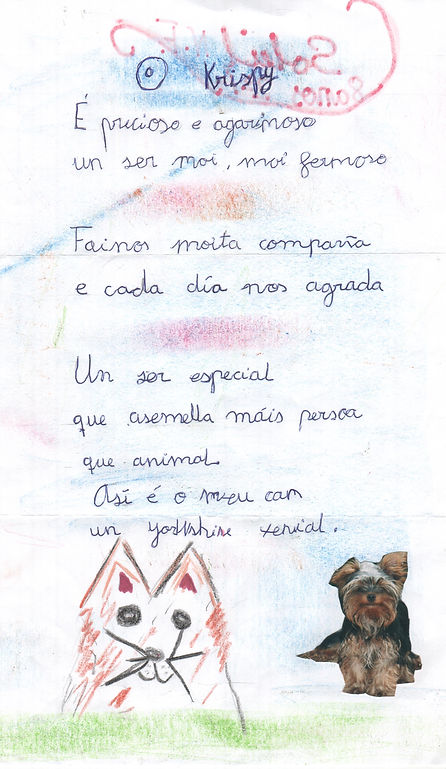 O Krispy
É precioso e agarimoso
un ser moi, moi fermoso
Fainos moita compaña
e cada día nos agrada
Un ser especial
que asemella máis persoa
que animal
Así é o meu can
un yorkshire xenial.